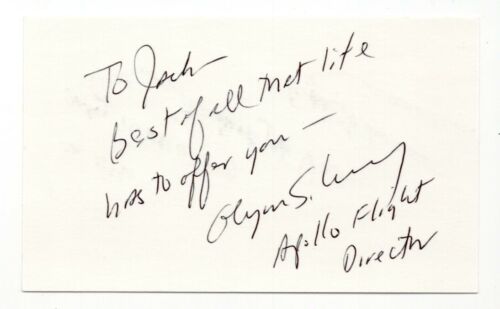 To Jack
best of all that life
has to offer you —
Glynn S. Lunney
Apollo Flight
Director